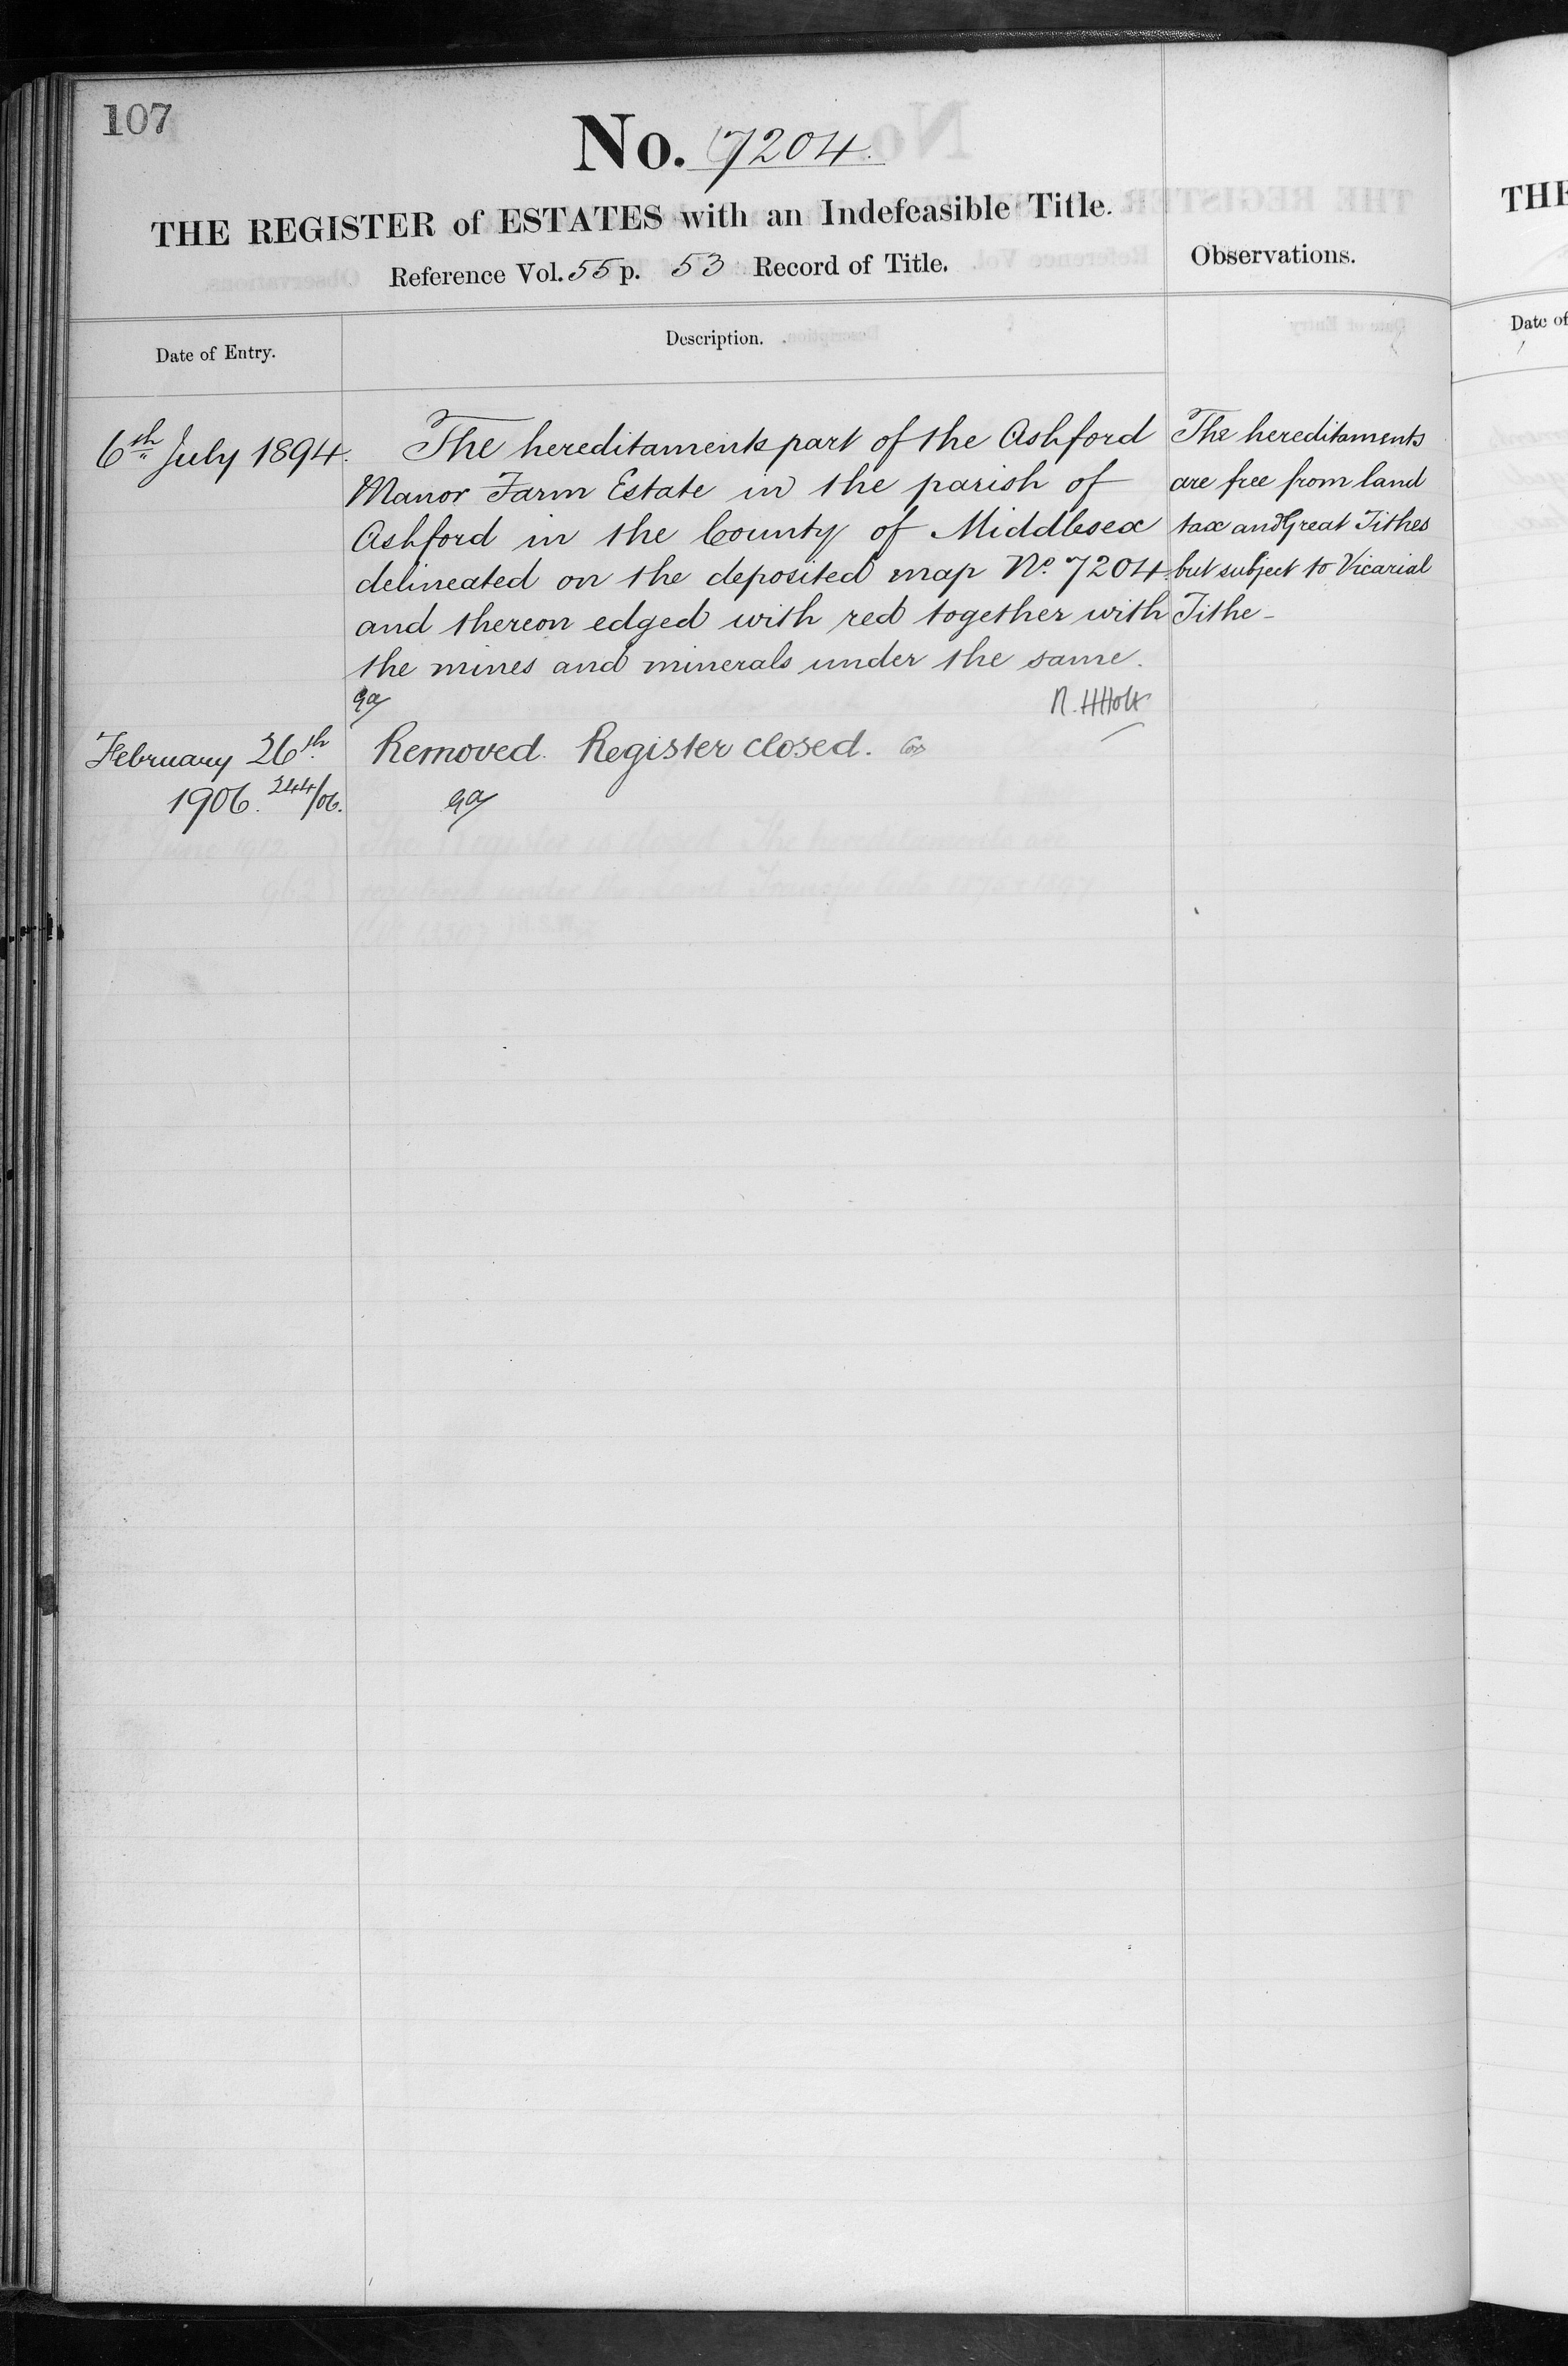 107
No. 7204.
THE REGISTER of ESTATES with an Indefeasible Title.
Reference Vol. 55 p. 53 Record of Title.
Observations.
Date of Entry.
Description.
6th July 1894.
The hereditaments part of the Ashford
Manor Farm Estate in the parish of
Ashford in the County of Middlesex
delineated on the deposited map No. 7204.
and thereon edged with red together with
the mines and minerals under the same.
The hereditaments
are free from land
tax and Great Tithes
but subject to Vicarial
Tithe -
R. H Holt
February 26th
1906. 244/06.
Removed. Register closed.
THE
Date of